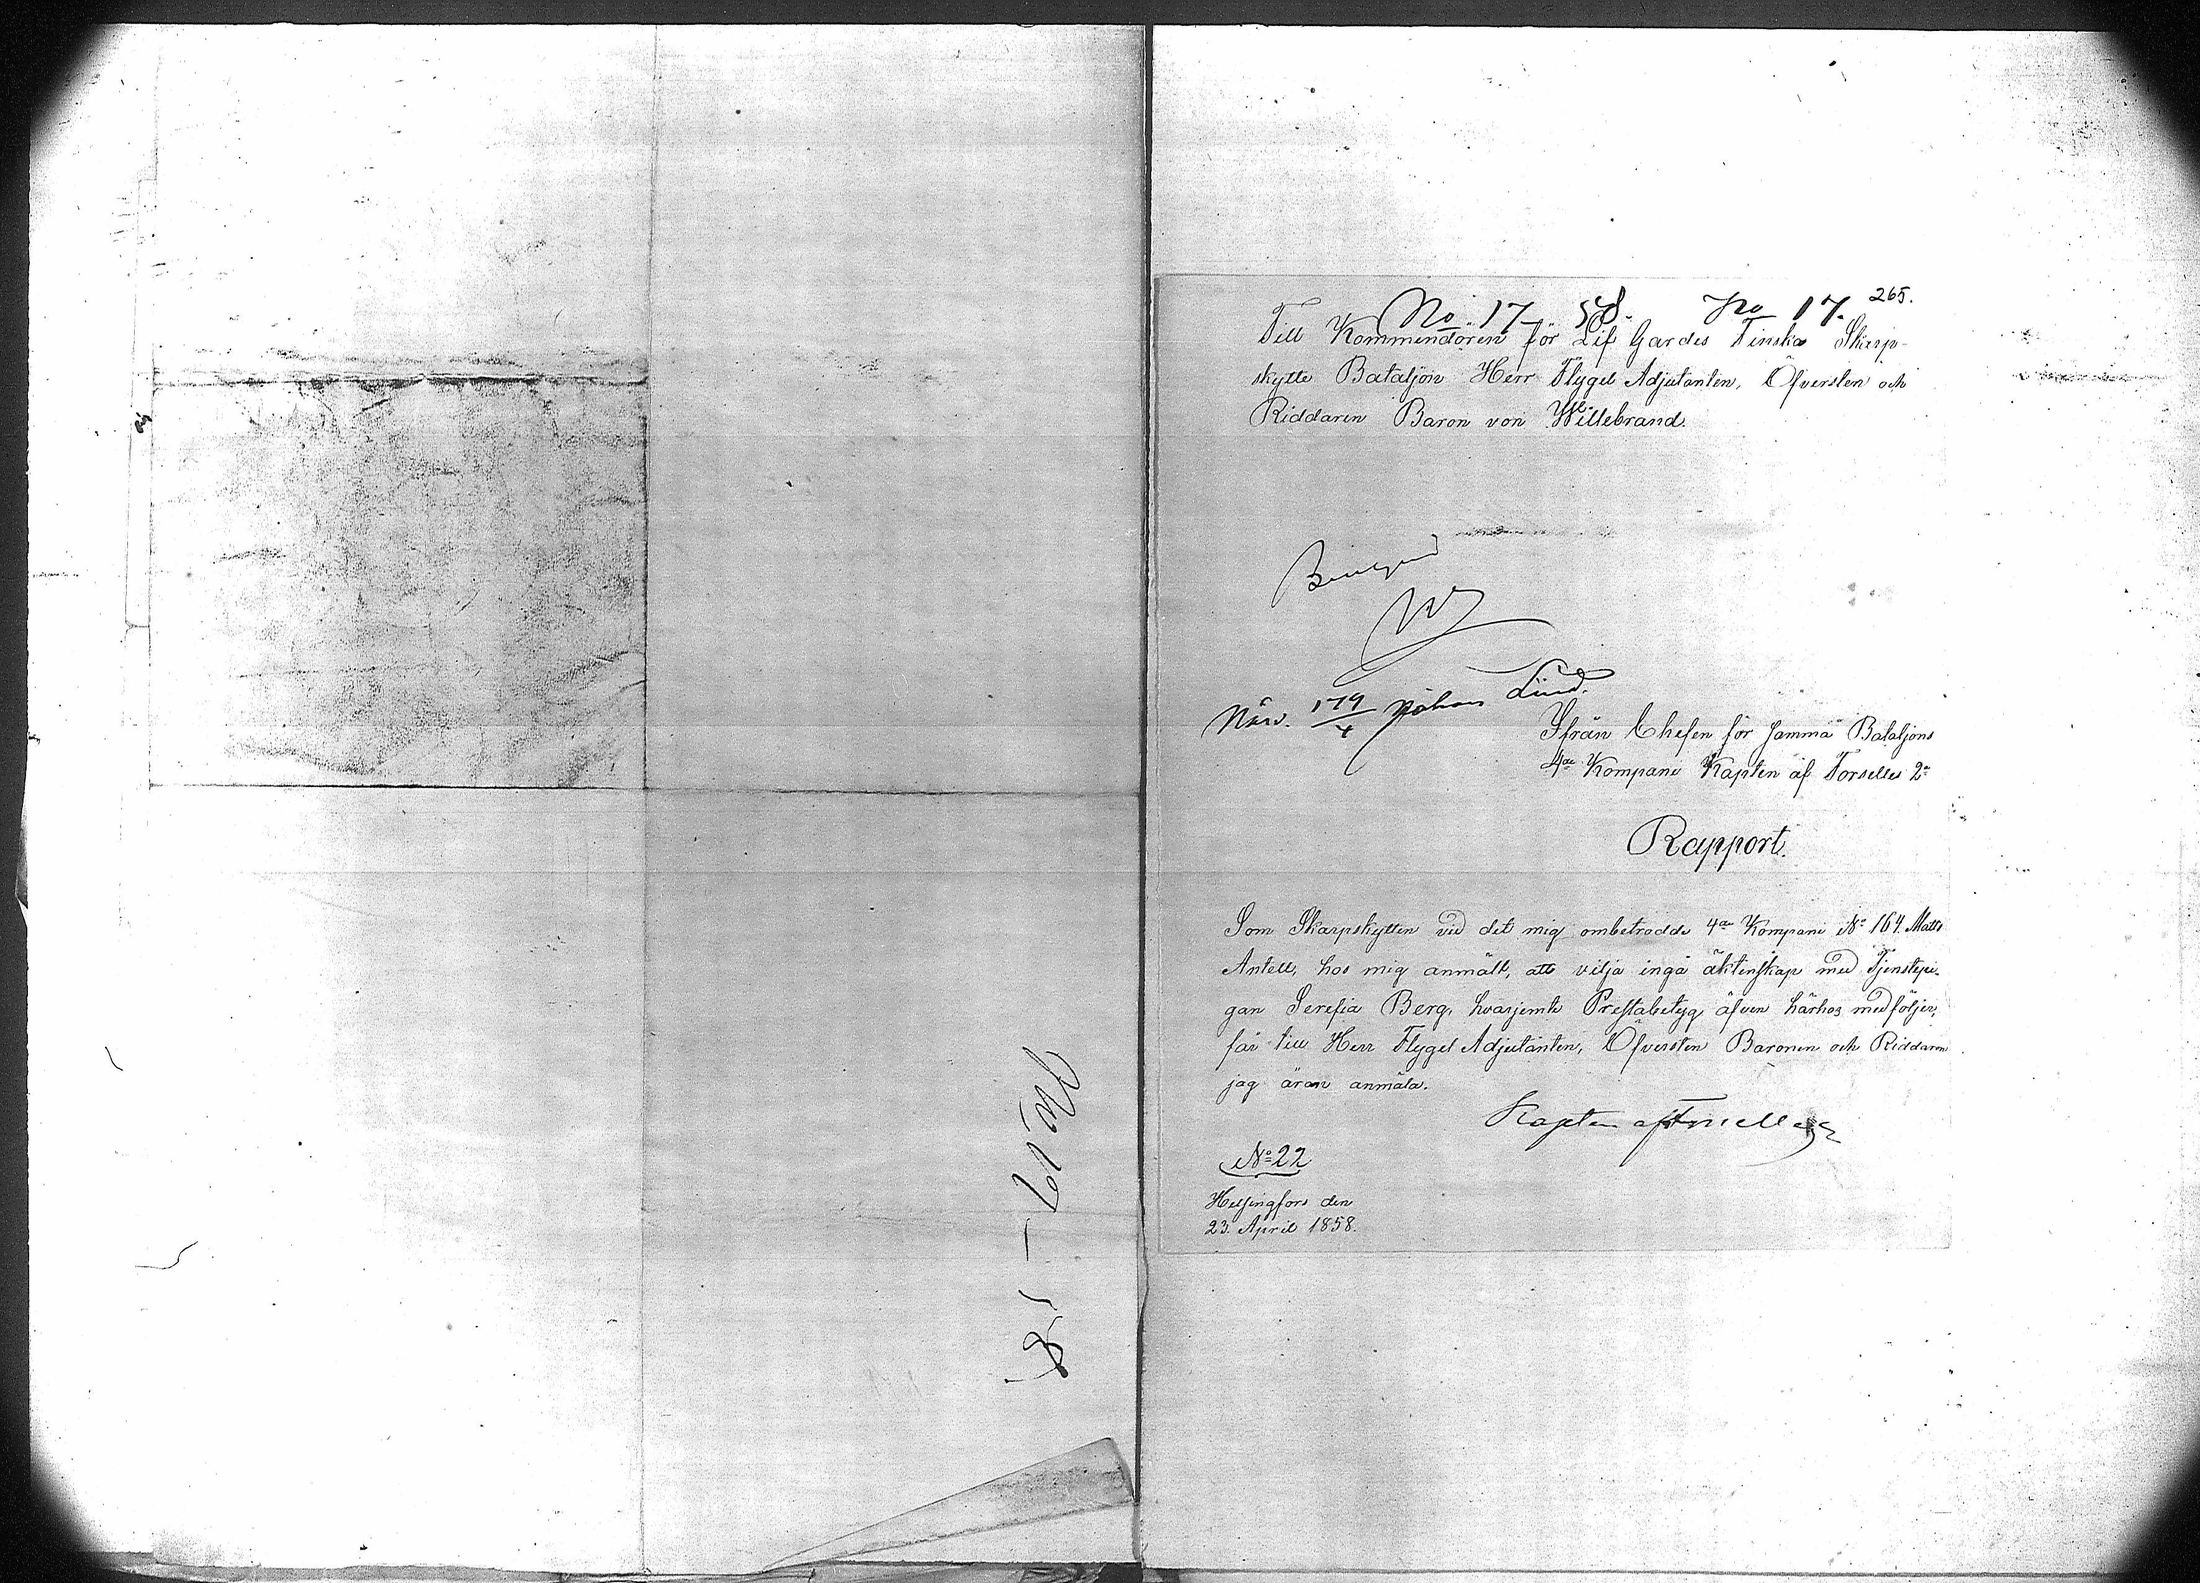 265.
No. 17 58. No 17.
Till Kommendören för Lif Gardes Finska Skarp-
skytte Bataljon Herr Flygel Adjutanten, Öfversten och
Riddaren Baron von Willebrand.
Ifrån Chefen för samma Bataljons
4de Kompani Kapten af Forselles 2a
Rapport.
Som Skarpskytten vid det mig ombetrodde 4de Kompani No 164. Matts
Antell, hos mig anmält, att vilja ingå äktenskap med Tjenstepi-
gan Serefia Berg, hvarjemte Prestabetyg äfven härhos medföljer,
får till Herr Flygel Adjutanten, Öfversten Baronen och Riddaren
jag äran anmäla.
Kapten af Forselles
No 22
Helsingfors den
23. April 1858.